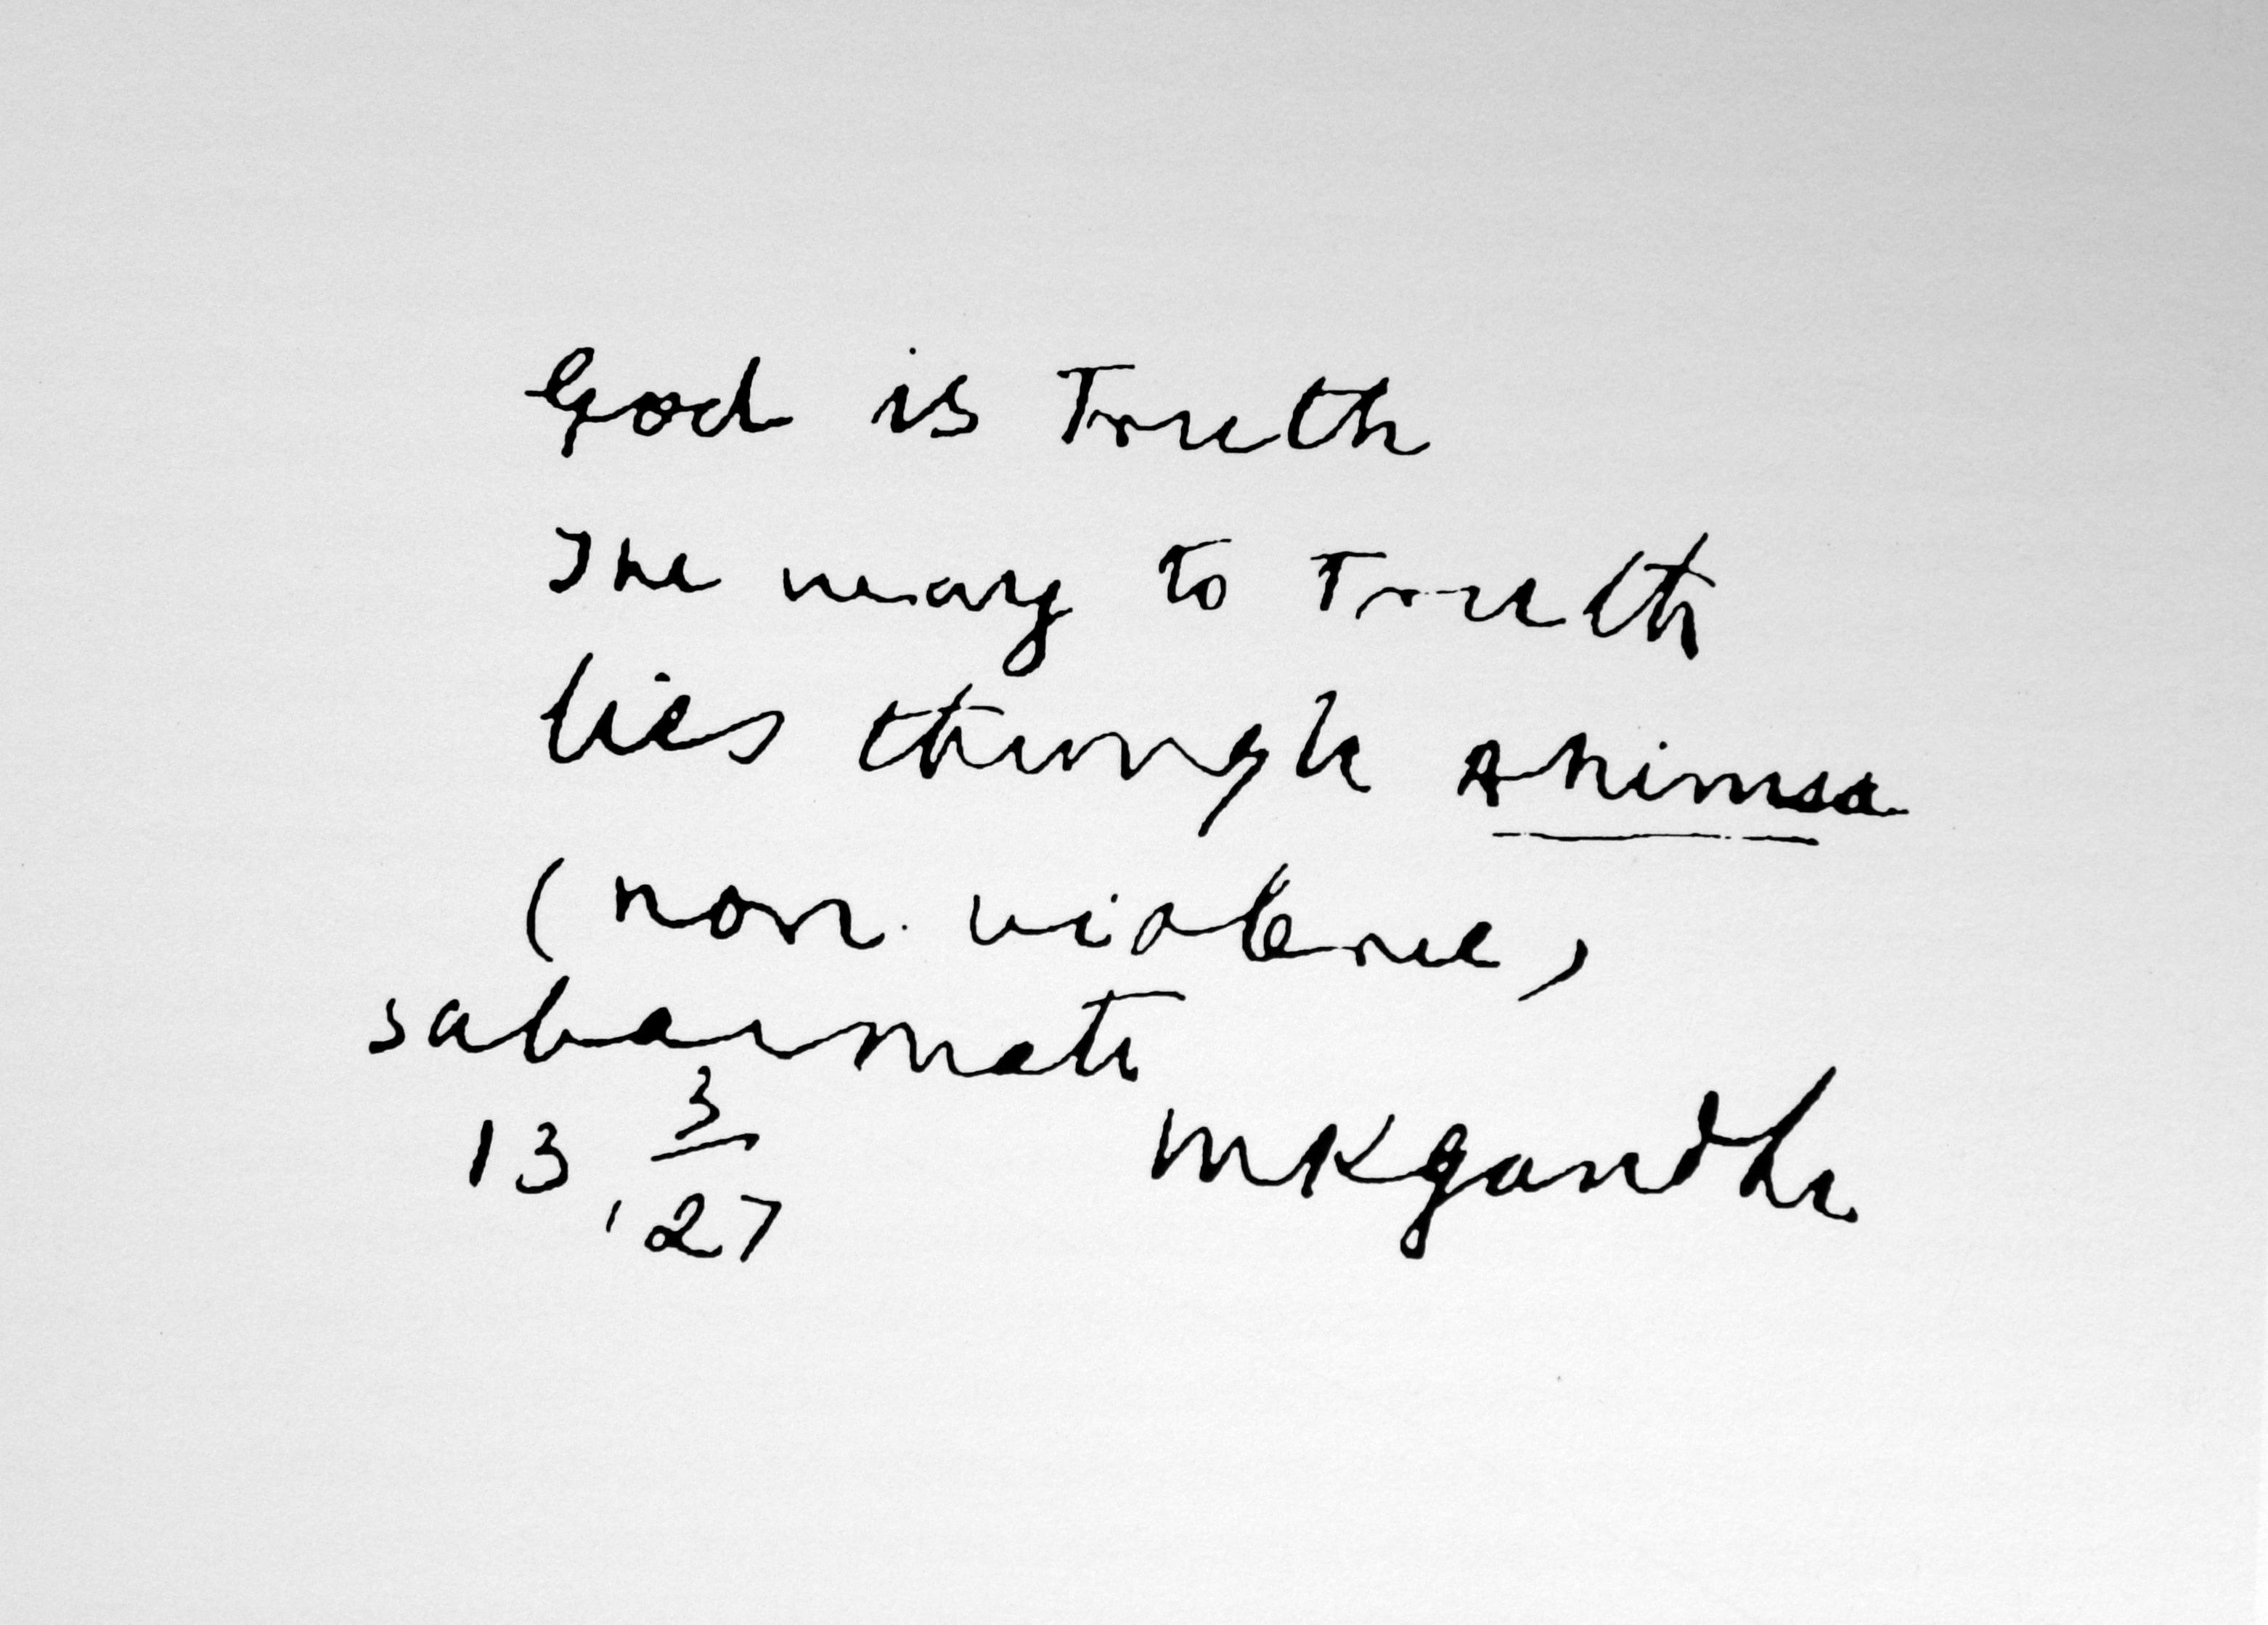 God is Truth
The way to Truth
lies through Ahimsa
(non-violence)
Sabarmati
13, 3/'27
MKGandhi